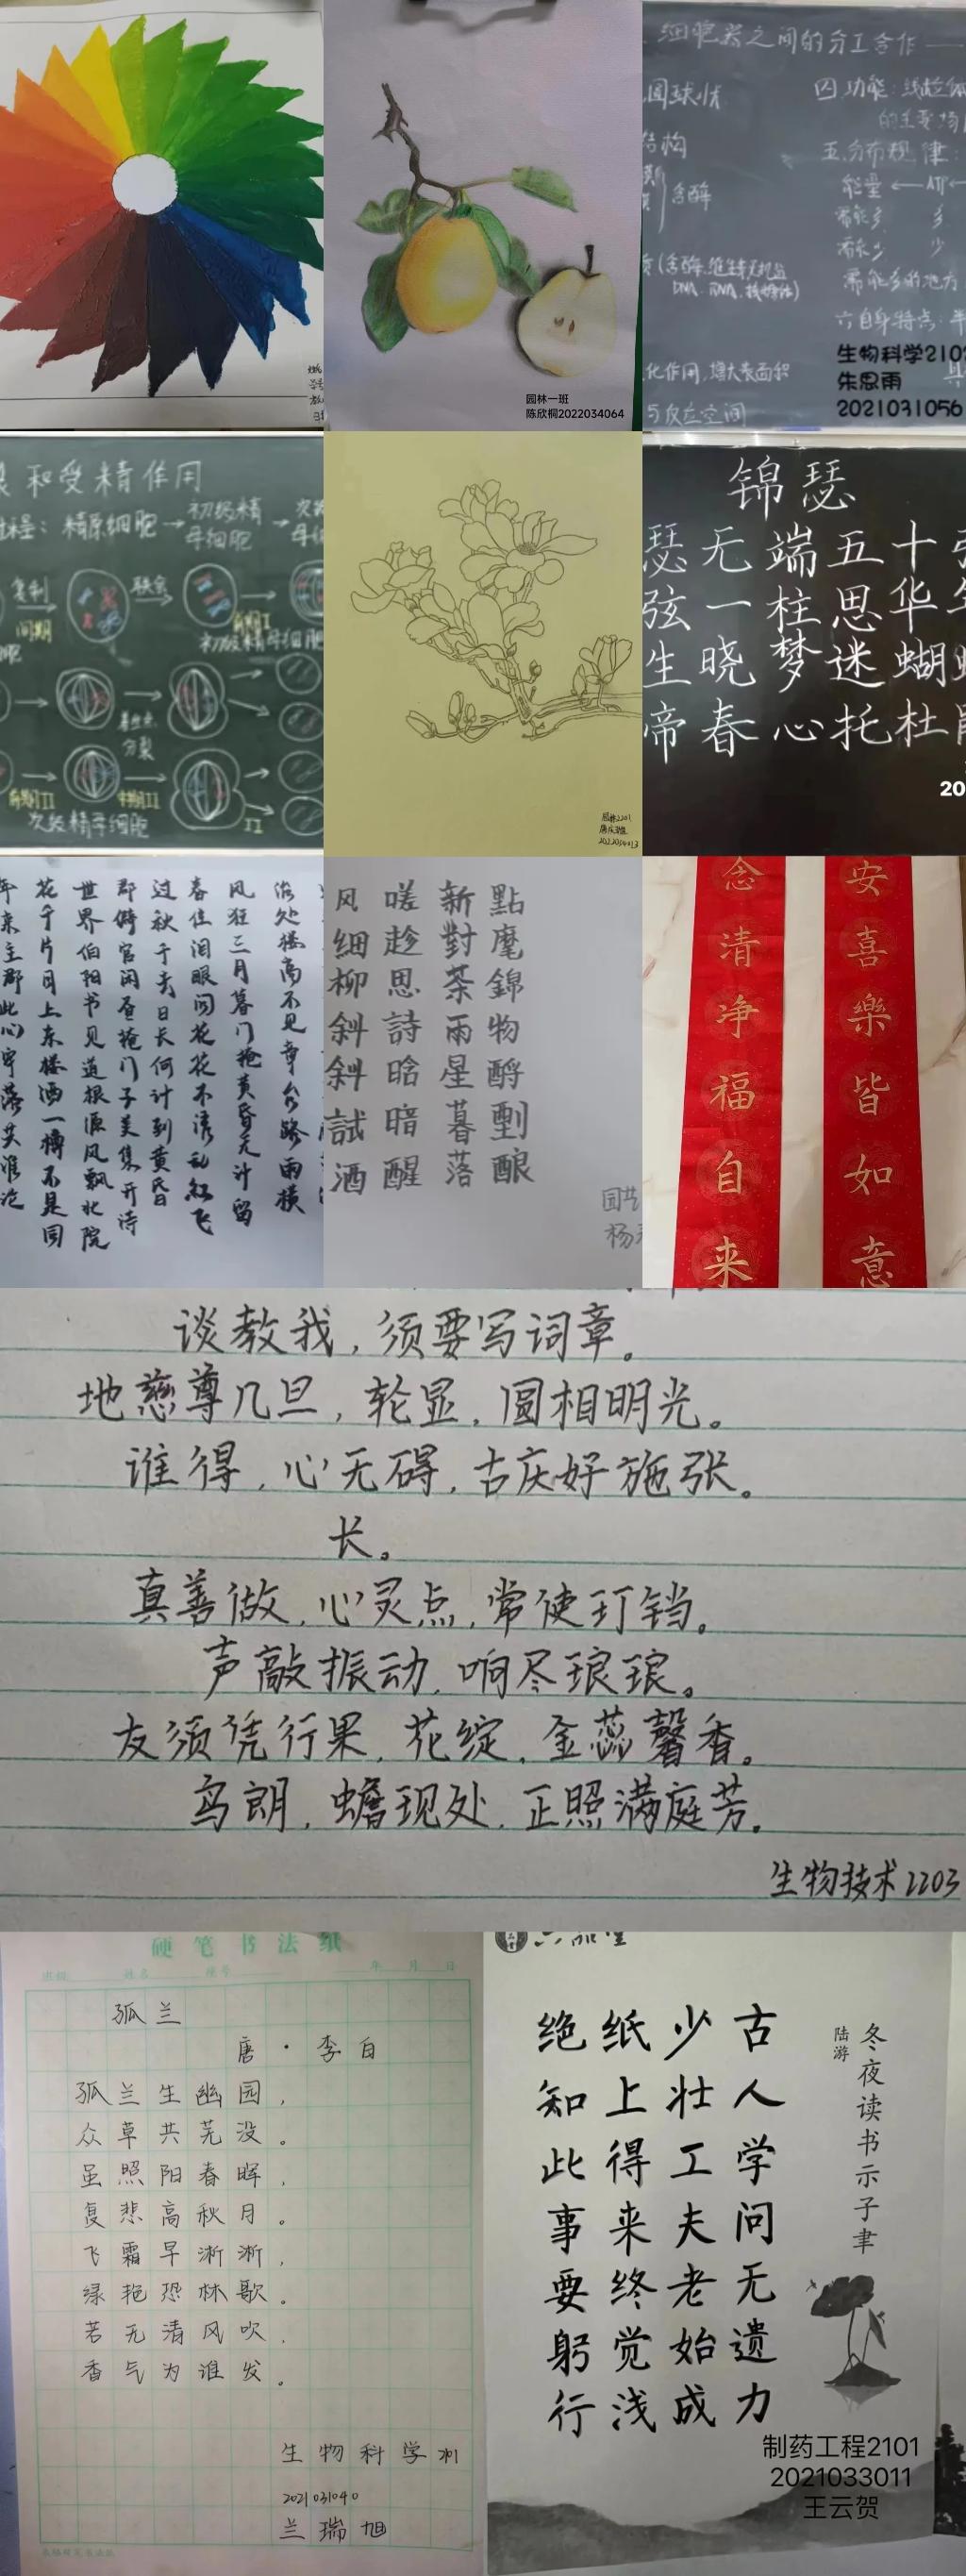 细胞器之间的分工合作——
圆球状
结构
含酶
DNA、RNA、核糖体)
化作用,增大表面积
与反应空间
四.功能:线粒体
的主要场
五.分布规律:
能量←ATP←
需能多 多
需能少 少
需能多的地方
六自身特点:半
生物科学210
朱思雨
2021031056
园林一班
陈欣桐2022034064
和受精作用
精原细胞→初级精母细胞→次级
复制
间期
联会
前期I
初级精母细胞
着丝点
分裂
前期II
中期II
次级精母细胞
园林2201
锦瑟
瑟无端五十
弦一柱思华
生晓梦迷蝴
帝春心托杜
20
冶处楼高不见章台路雨横
风狂三月暮门掩黄昏无计留
春住泪眼问花花不语乱红飞
过秋千去日长何计到黄昏
郡僻官闲昼掩门子美集开诗
世界伯阳书见道根源风飘北院
花千片月上东楼酒一樽不是同
年来主郡此心牢落共谁论
點麾錦物酹剷酿
新對茶雨星暮落
嗟趁思詩晗暗醒
风细柳斜斜試酒
园艺
杨
安喜樂皆如意
念清净福自来
谈教我,须要写词章。
地慈尊几旦,轮显,圆相明光。
谁得,心无碍,古庆好施张。
长。
真善做,心灵点,常使玎铛。
声敲振动,响尽琅琅。
友须凭行果,花绽,金蕊馨香。
乌朗,蟾现处,正照满庭芳。
生物技术2203
硬笔书法纸
班级 姓名 座号 年 月 日
孤兰
唐·李白
孤兰生幽园,
众草共芜没。
虽照阳春晖,
复悲高秋月。
飞霜早淅淅,
绿艳恐休歇。
若无清风吹,
香气为谁发。
生物科学2101
2021031040
兰瑞旭
冬夜读书示子聿
陆游
古人学问无遗力
少壮工夫老始成
纸上得来终觉浅
绝知此事要躬行
制药工程2101
2021033011
王云贺